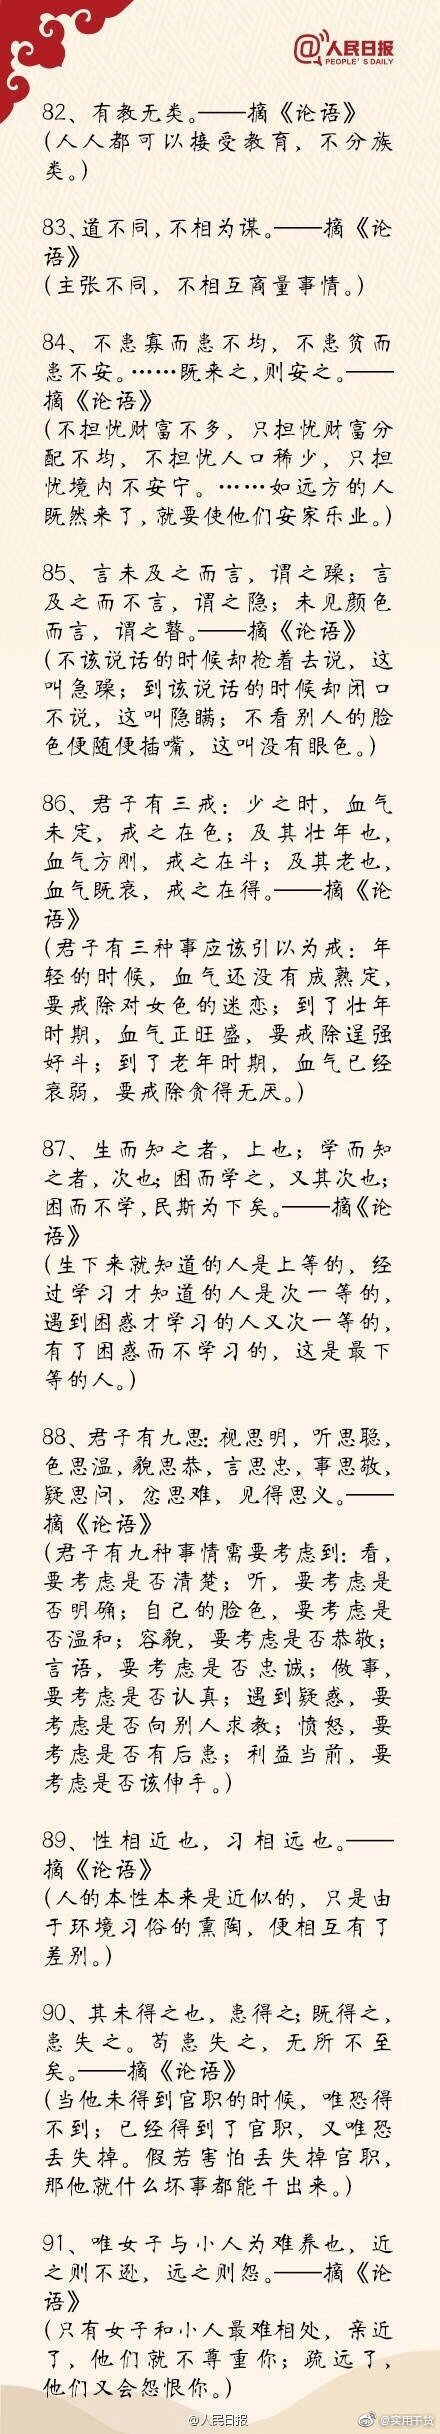 @人民日报
PEOPLE'S DAILY
82、有教无类。——摘《论语》
(人人都可以接受教育，不分族
类。)
83、道不同，不相为谋。——摘《论
语》
(主张不同，不相互商量事情。)
84、不患寡而患不均，不患贫而
患不安。……既来之，则安之。——
摘《论语》
(不担忧财富不多，只担忧财富分
配不均，不担忧人口稀少，只担
忧境内不安宁。……如远方的人
既然来了，就要使他们安家乐业。)
85、言未及之而言，谓之躁；言
及之而不言，谓之隐；未见颜色
而言，谓之瞽。——摘《论语》
(不该说话的时候却抢着去说，这
叫急躁；到该说话的时候却闭口
不说，这叫隐瞒；不看别人的脸
色便随便插嘴，这叫没有眼色。)
86、君子有三戒：少之时，血气
未定，戒之在色；及其壮年也，
血气方刚，戒之在斗；及其老也，
血气既衰，戒之在得。——摘《论
语》
(君子有三种事应该引以为戒：年
轻的时候，血气还没有成熟定，
要戒除对女色的迷恋；到了壮年
时期，血气正旺盛，要戒除逞强
好斗；到了老年时期，血气已经
衰弱，要戒除贪得无厌。)
87、生而知之者，上也；学而知
之者，次也；困而学之，又其次也；
困而不学，民斯为下矣。——摘《论
语》
(生下来就知道的人是上等的，经
过学习才知道的人是次一等的，
遇到困惑才学习的人又次一等的，
有了困惑而不学习的，这是最下
等的人。)
88、君子有九思：视思明，听思聪，
色思温，貌思恭，言思忠，事思敬，
疑思问，忿思难，见得思义。——
摘《论语》
(君子有九种事情需要考虑到：看，
要考虑是否清楚；听，要考虑是
否明确；自己的脸色，要考虑是
否温和；容貌，要考虑是否恭敬；
言语，要考虑是否忠诚；做事，
要考虑是否认真；遇到疑惑，要
考虑是否向别人求教；愤怒，要
考虑是否有后患；利益当前，要
考虑是否该伸手。)
89、性相近也，习相远也。——
摘《论语》
(人的本性本来是近似的，只是由
于环境习俗的熏陶，便相互有了
差别。)
90、其未得之也，患得之；既得之，
患失之。苟患失之，无所不至
矣。——摘《论语》
(当他未得到官职的时候，唯恐得
不到；已经得到了官职，又唯恐
丢失掉。假若害怕丢失掉官职，
那他就什么坏事都能干出来。)
91、唯女子与小人为难养也，近
之则不逊，远之则怨。——摘《论
语》
(只有女子和小人最难相处，亲近
了，他们就不尊重你；疏远了，
他们又会怨恨你。)
@人民日报
@实用干货